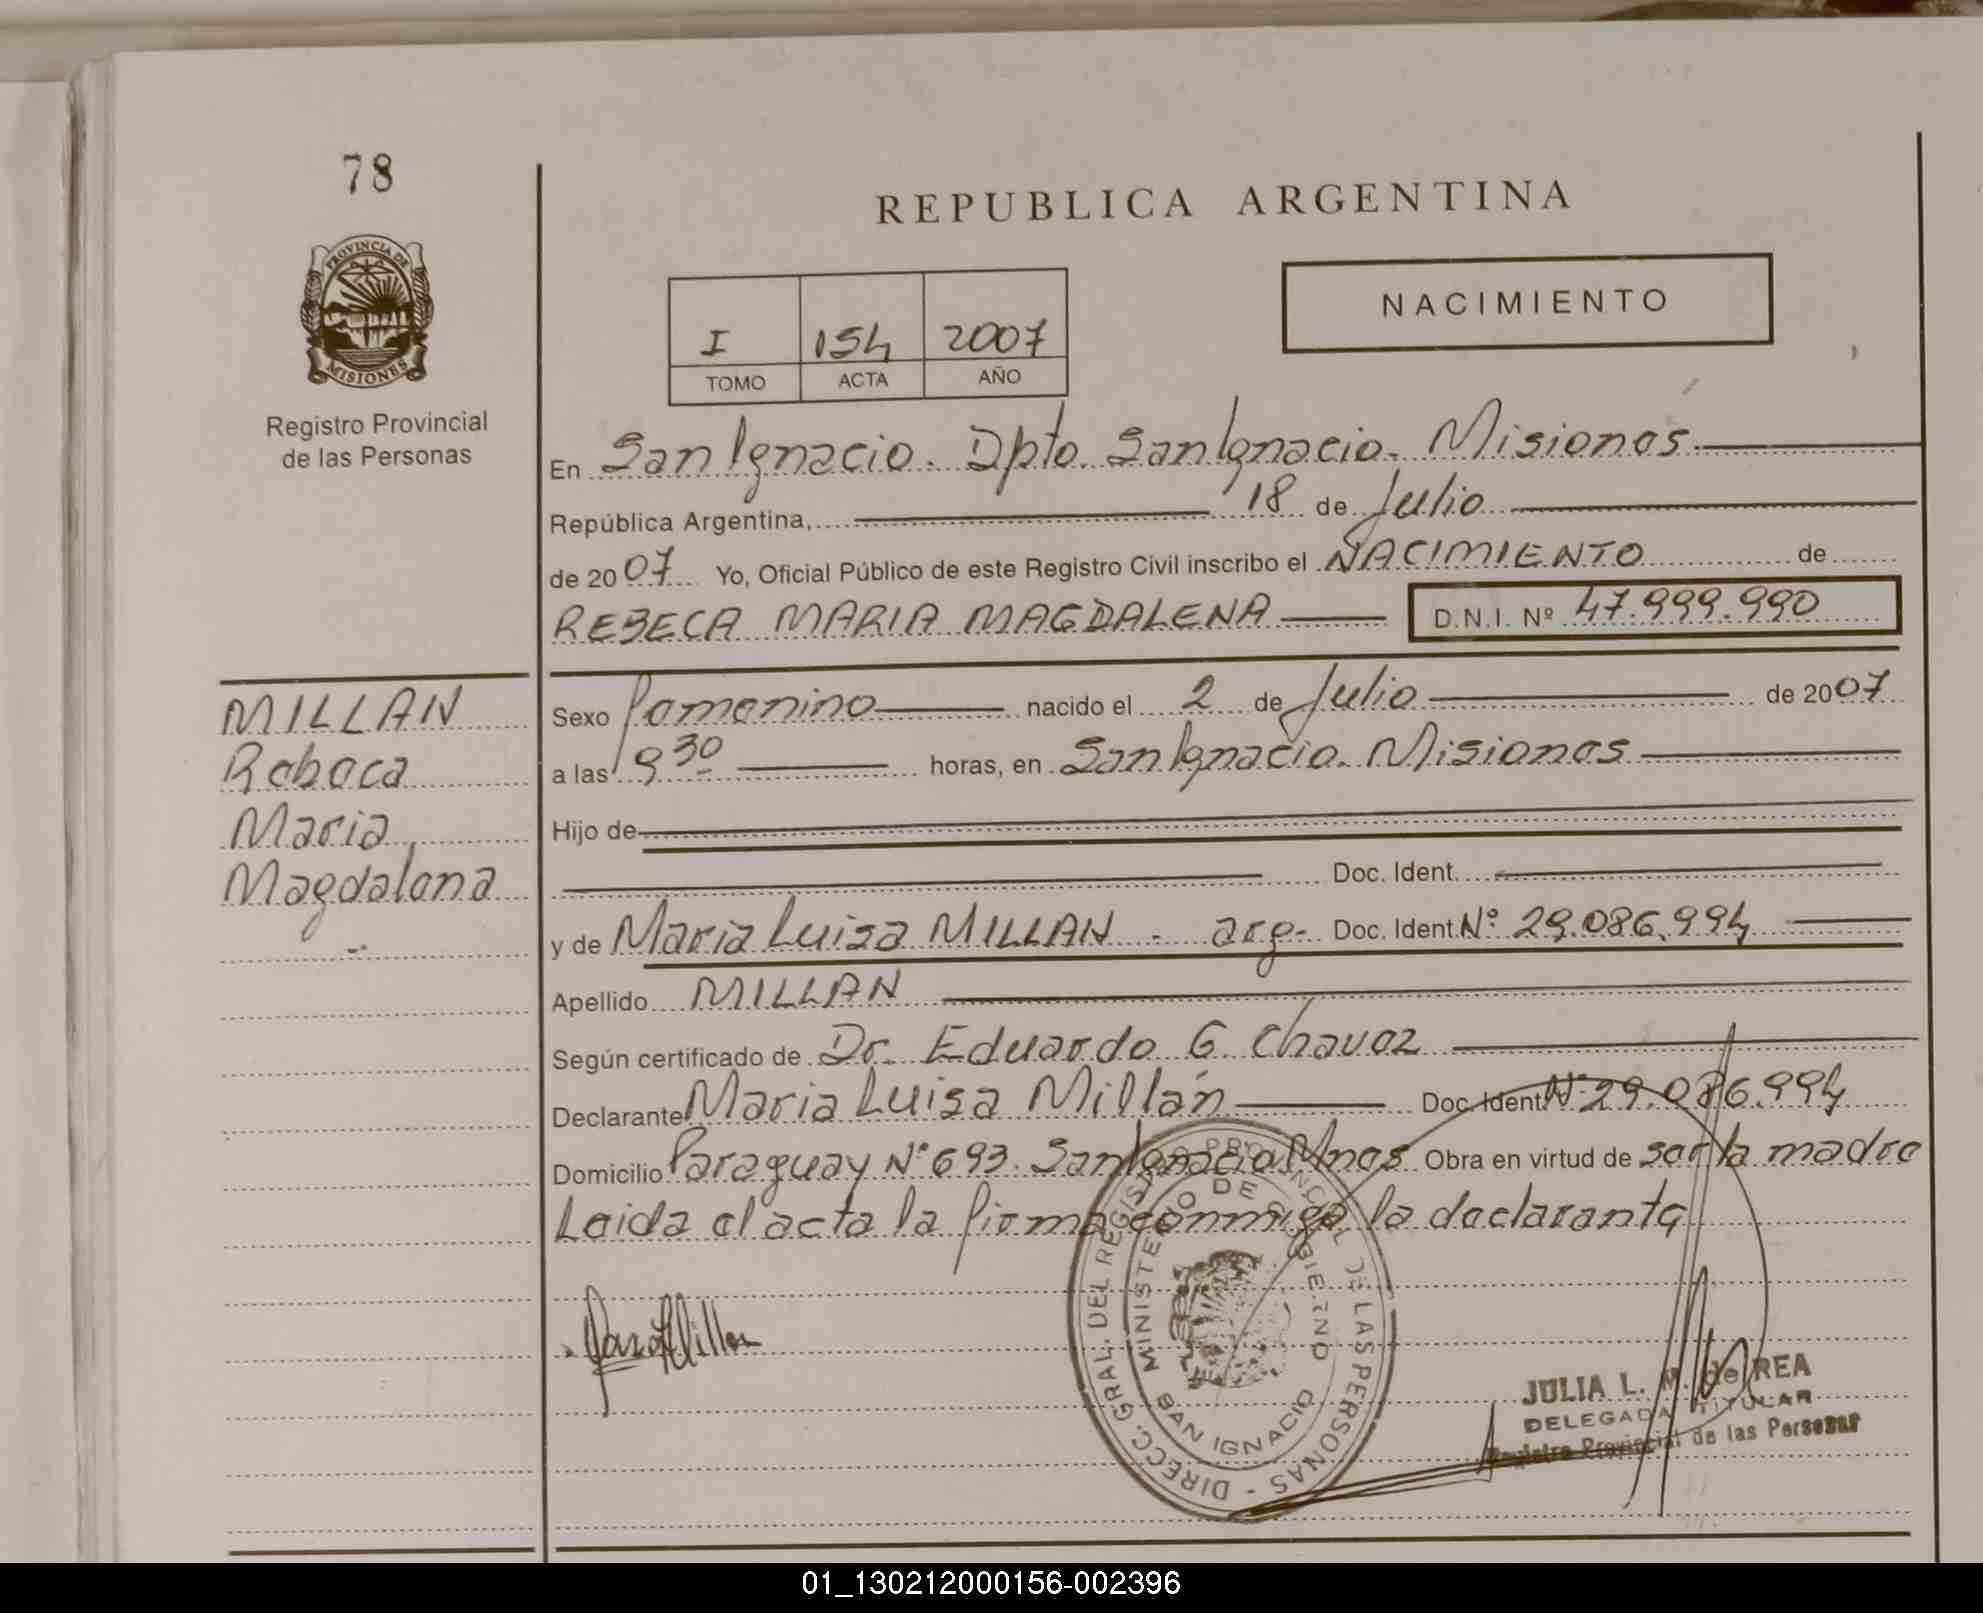 78
REPUBLICA ARGENTINA
PROVINCIA DE
MISIONES
NACIMIENTO
I 154 2007
TOMO ACTA AÑO
Registro Provincial
de las Personas
En San Ignacio. Dpto. San Ignacio. Misiones
República Argentina, 18 de Julio
de 2007 Yo, Oficial Público de este Registro Civil inscribo el NACIMIENTO de
REBECA MARIA MAGDALENA D.N.I. Nº 47.999.990
MILLAN
Rebeca
Maria
Magdalena
Sexo femenino nacido el 2 de Julio de 2007
a las 9 30 horas, en San Ignacio. Misiones
Hijo de
Doc. Ident.
y de Maria Luisa MILLAN - arg- Doc. Ident Nº 29.086.994
Apellido MILLAN
Según certificado de Dr. Eduardo G. Chavez
Declarante Maria Luisa Millán Doc. Ident Nº 29.086.994
Domicilio Paraguay Nº 693. San Ignacio Mnes Obra en virtud de ser la madre
Leida el acta la firma conmigo la declarante
DIRECC. GRAL. DEL REGISTRO PROVINCIAL DE LAS PERSONAS -
MINISTERIO DE GOBIERNO
SAN IGNACIO
JULIA L. M. de REA
DELEGADA TITULAR
Registro Provincial de las Personas
01_130212000156-002396